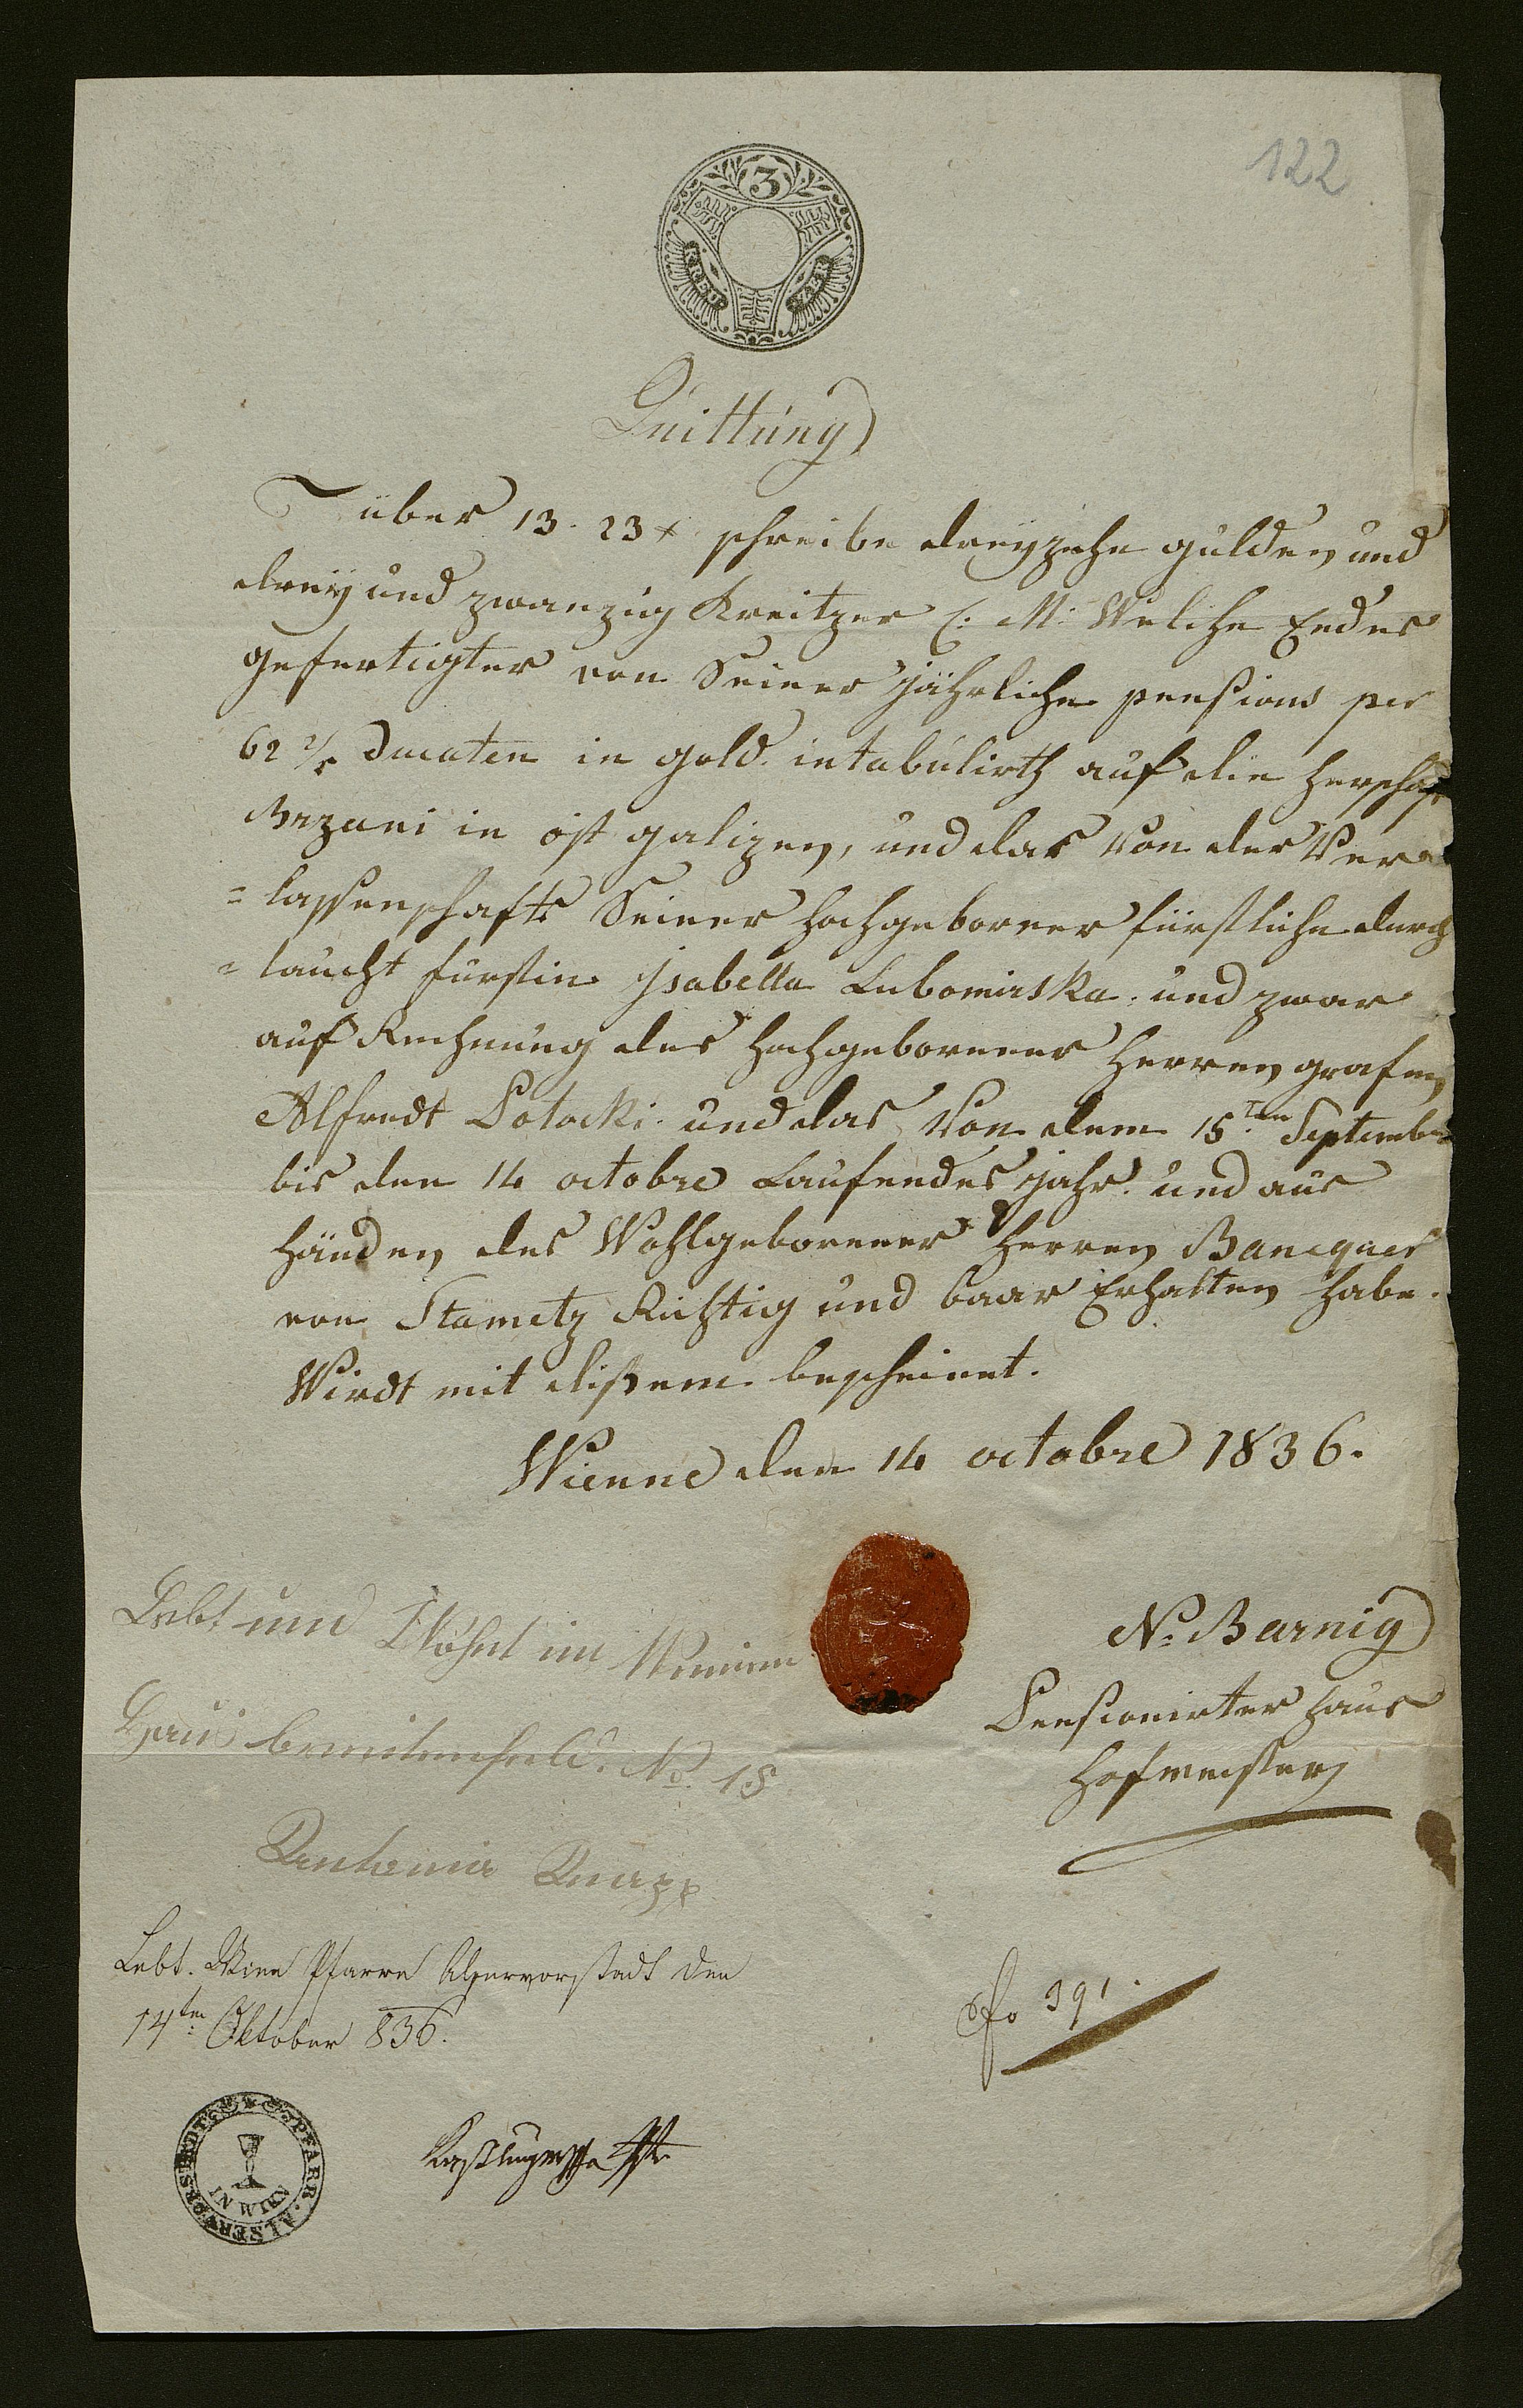 122
3
KREU
ZER
Quittung
über 13. 23 x schreibe dreyzehn gulden und
dreÿ und zwanzig Kreitzer C: M: Welche Endes
gefertigter von Seiner jährliche pensions per
62 ½ Ducaten in gold. intabulirth auf die Herschaft
Brzani in öst galizen, und das Von der Ver
= lassenschafts Seiner Hochgeborner fürstliche durch
= laucht fürstin Isabella Lubomirska. und zwar
auf Rechnung des Hochgeborener Herren grafen
Alfredt Potocki. und das Von dem 15ten September
bis den 14 octobre Laufendes jahr. und aus
Händen des Wohlgeborener Herren Bancquer
von Stametz Richtig und baar Erhalten habe.
Wirdt mit dißem bescheinet.
Vienne den 14 octobre 1836.
N. Barnig
Pensionirter Haus
Hofmeister
Lebt und Wohnt im
Haus No. 18
Antonia
Lebt. Wien Pfarre Alservorstadt den
14ten Oktober 836.
fo 391.
PFARR. ALSERVORSTADT
IN WIEN